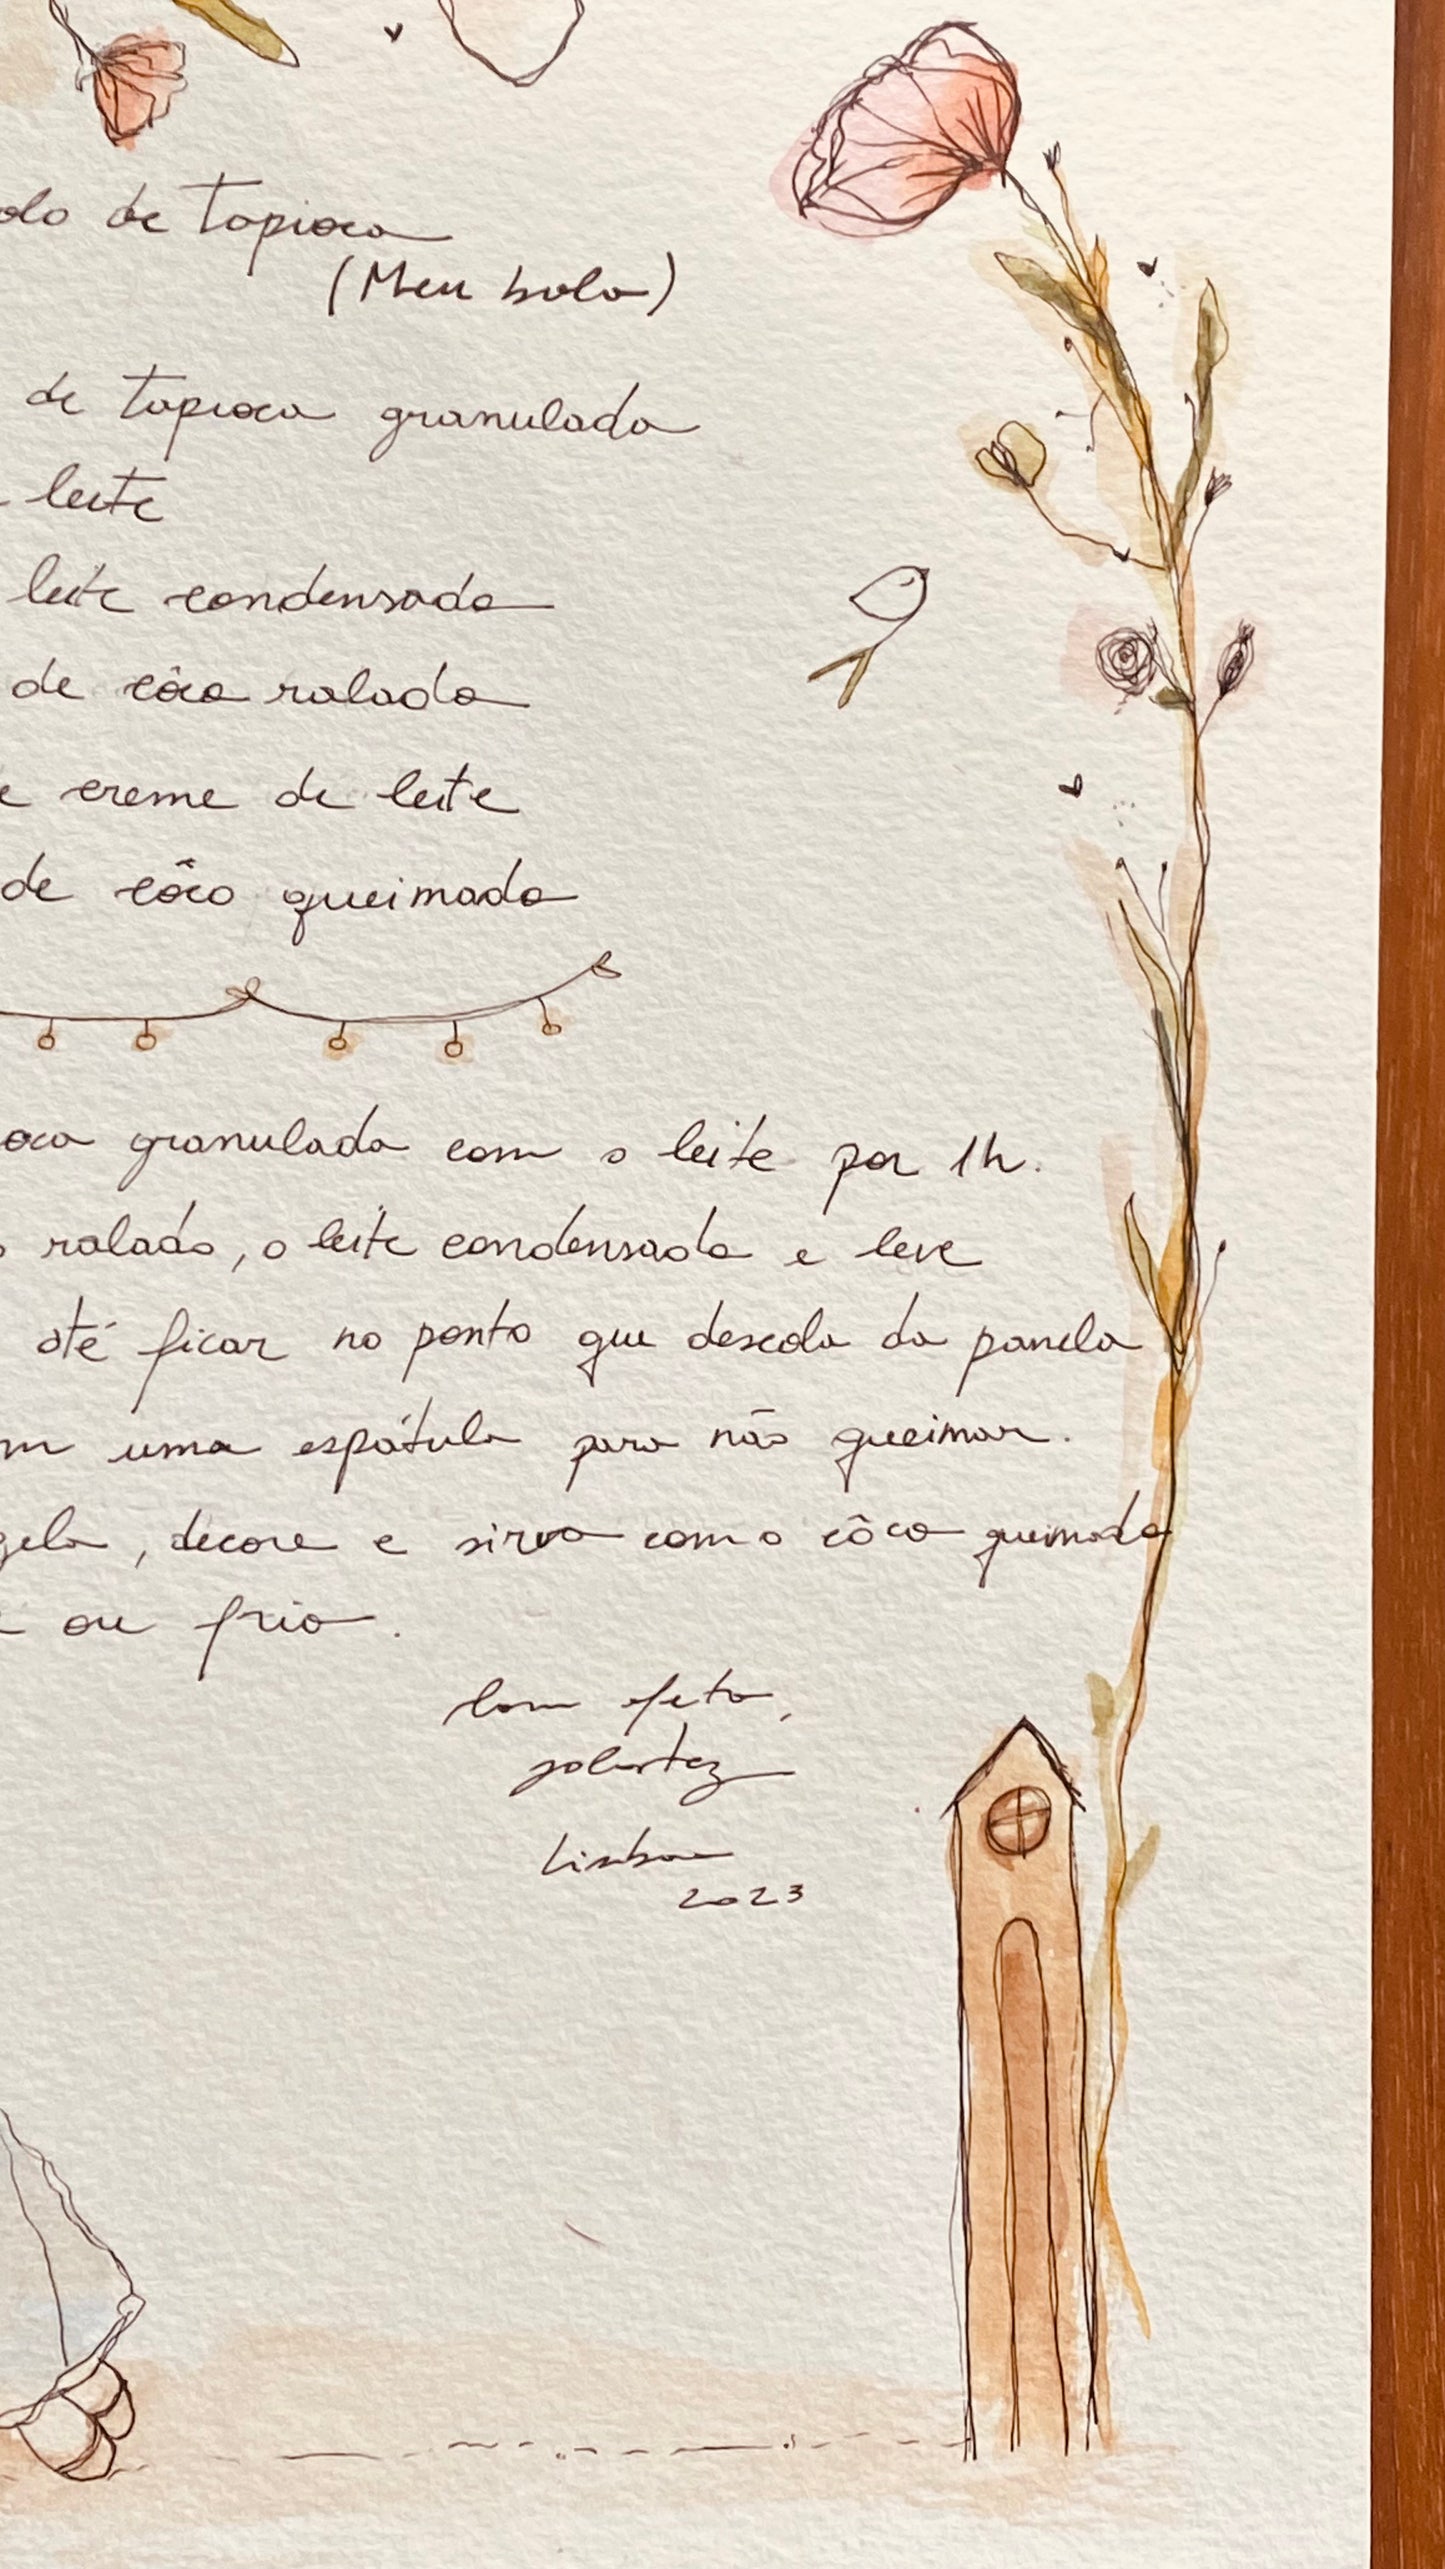 olo de Tapioca
(Meu bolo)
de tapioca granulada
leite
leite condensado
de côco ralado
e creme de leite
de côco queimado
oca granulada com o leite por 1h.
o ralado, o leite condensado e leve
até ficar no ponto que descola da panela
m uma espátula para não queimar.
gela, decore e sirva com o côco queimado
e ou frio.
Com afeto,
Lisboa
2023